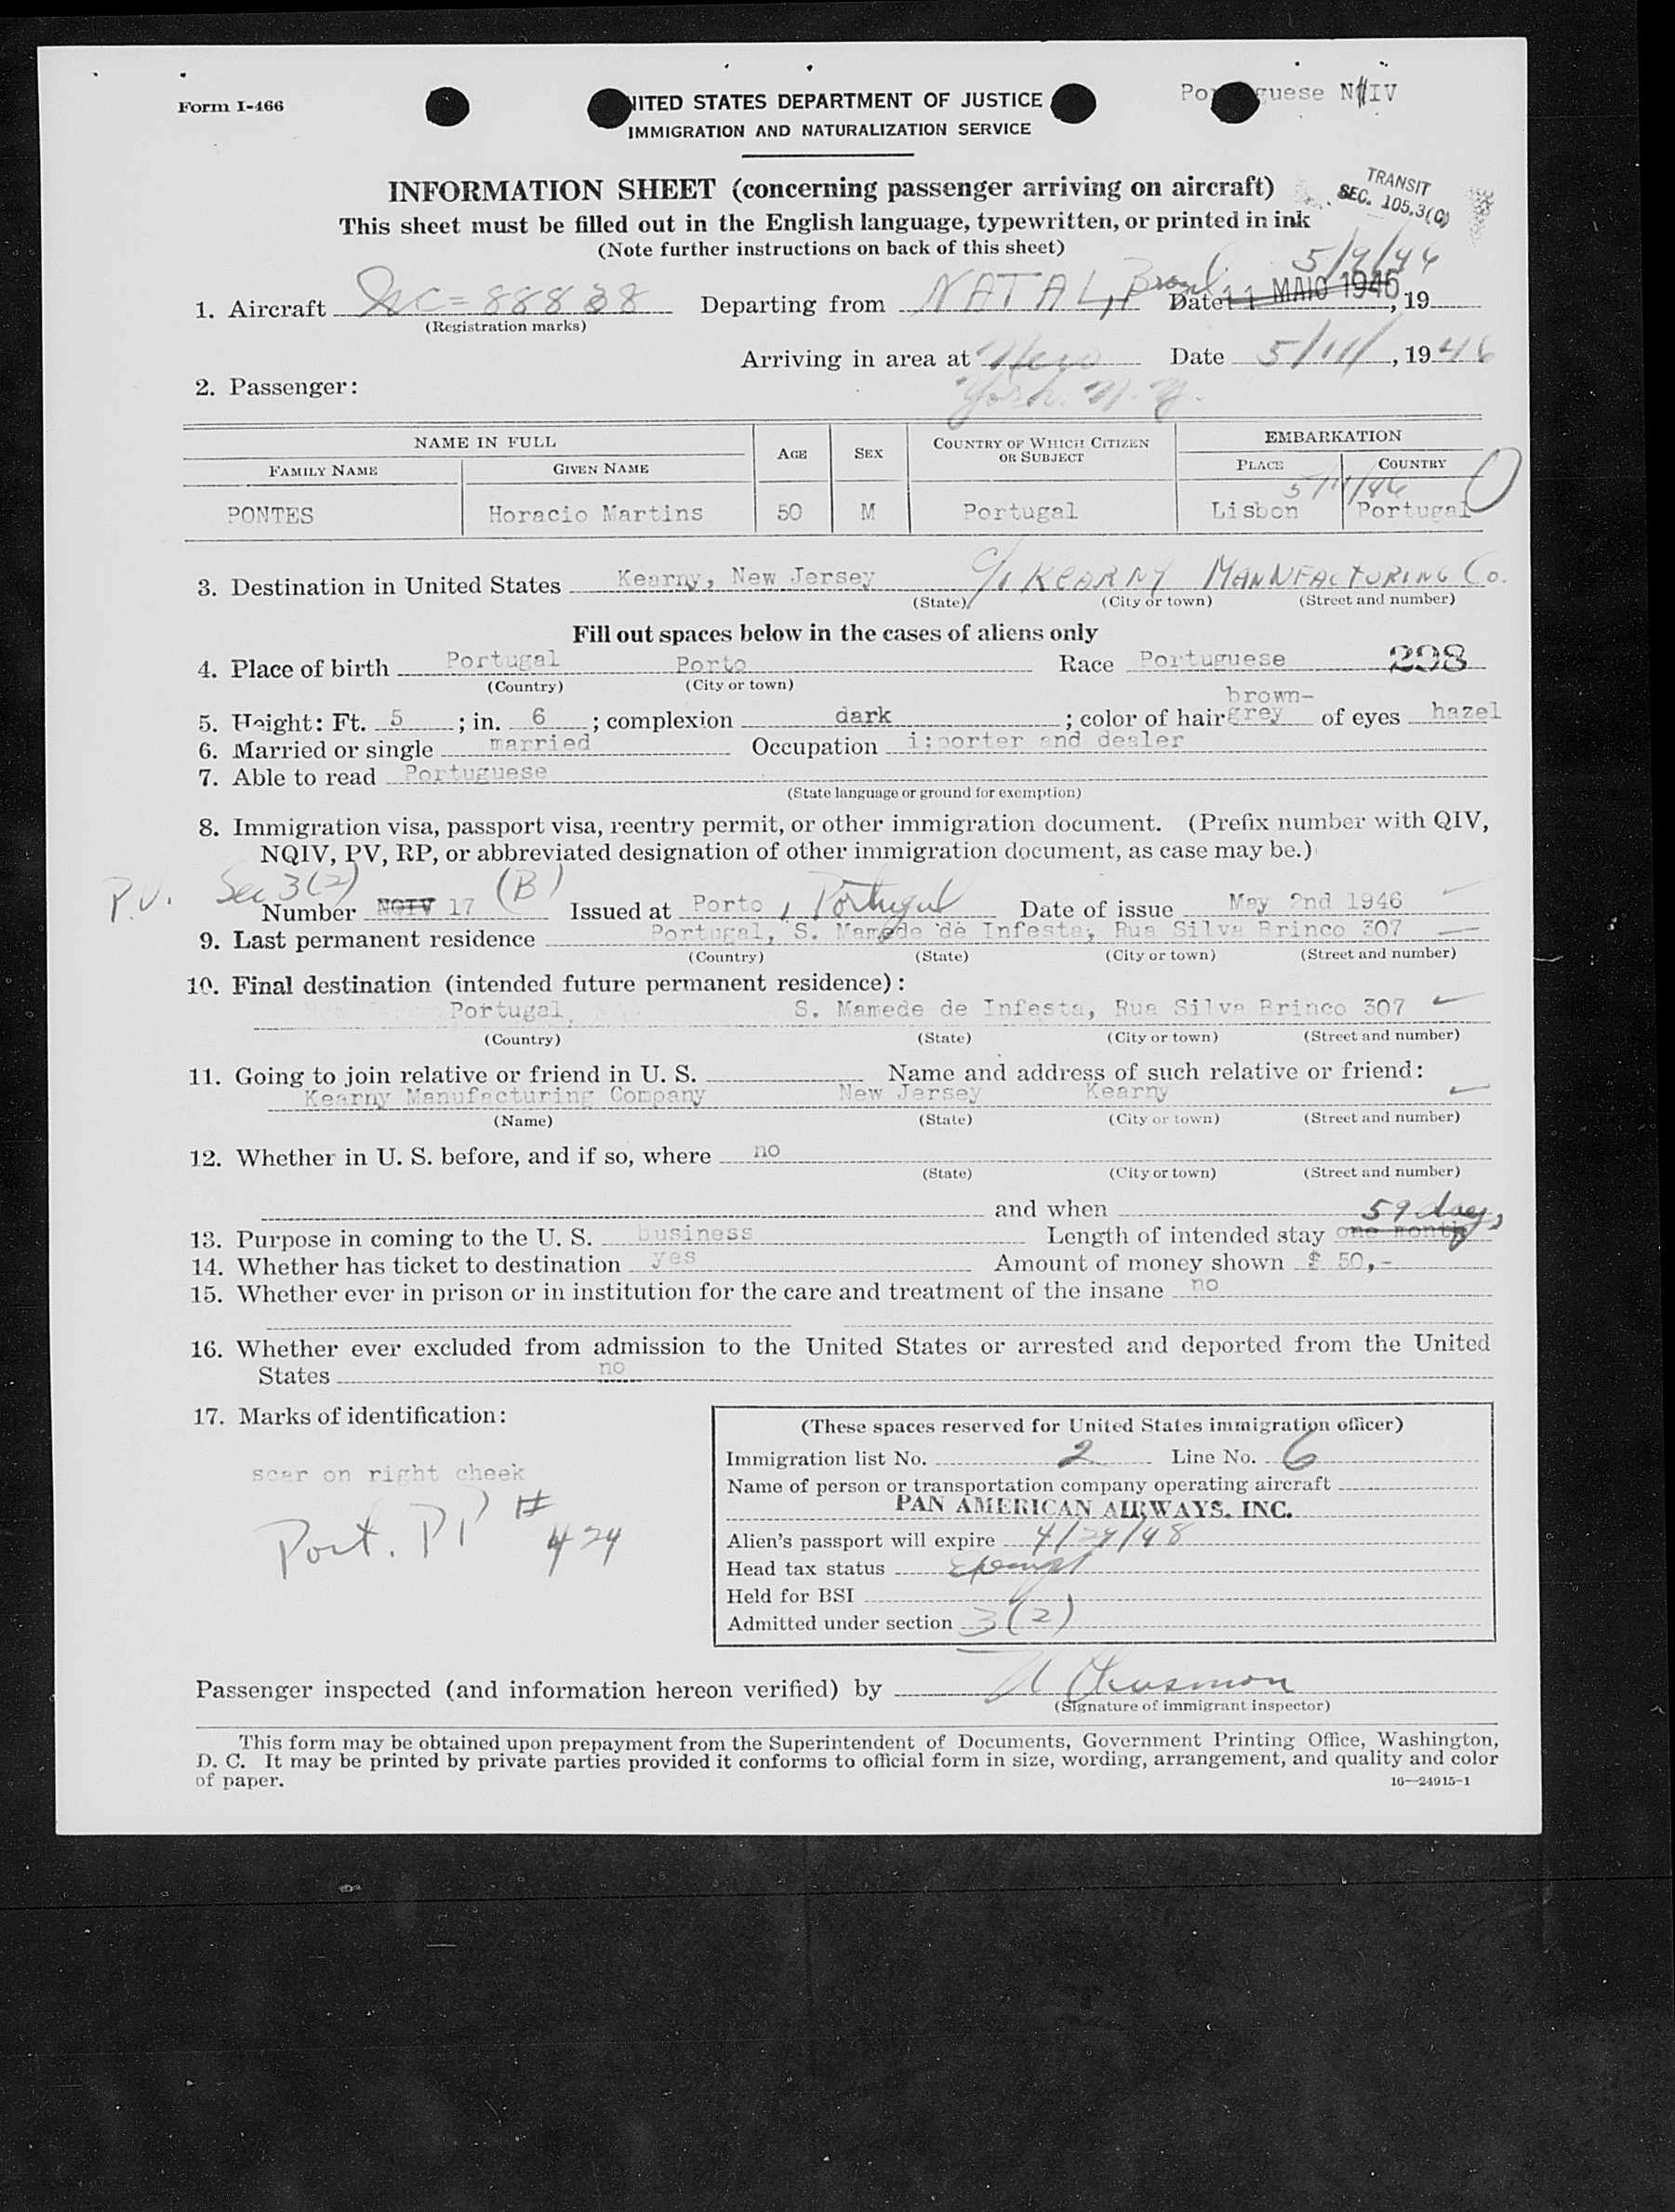 Form I-466
UNITED STATES DEPARTMENT OF JUSTICE
IMMIGRATION AND NATURALIZATION SERVICE
Portuguese NQIV
INFORMATION SHEET (concerning passenger arriving on aircraft)
TRANSIT
SEC. 105.3(C)
This sheet must be filled out in the English language, typewritten, or printed in ink
(Note further instructions on back of this sheet)
5/9/46
1. Aircraft Departing from NATAL, Brazil Date 11 MAIO 1946, 19
(Registration marks)
Arriving in area at New York. N.Y. Date 5/11/, 1946
2. Passenger:
NAME IN FULL AGE SEX COUNTRY OF WHICH CITIZEN OR SUBJECT EMBARKATION
FAMILY NAME GIVEN NAME PLACE COUNTRY
5/11/46
PONTES Horacio Martins 50 M Portugal Lisbon Portugal
3. Destination in United States Kearny, New Jersey c/o KEARNY MANNFACTURING Co.
(State) (City or town) (Street and number)
Fill out spaces below in the cases of aliens only
4. Place of birth Portugal Porto Race Portuguese 298
(Country) (City or town)
5. Height: Ft. 5; in. 6; complexion dark; color of hair brown-grey of eyes hazel
6. Married or single married Occupation i;porter and dealer
7. Able to read Portuguese
(State language or ground for exemption)
8. Immigration visa, passport visa, reentry permit, or other immigration document. (Prefix number with QIV,
NQIV, PV, RP, or abbreviated designation of other immigration document, as case may be.)
P.V. Sec 3(2) (B)
Number NQIV 17 Issued at Porto, Portugal Date of issue May 2nd 1946
9. Last permanent residence Portugal, S. Mamede de Infesta, Rua Silva Brinco 307
(Country) (State) (City or town) (Street and number)
10. Final destination (intended future permanent residence):
Portugal, S. Mamede de Infesta, Rua Silva Brinco 307
(Country) (State) (City or town) (Street and number)
11. Going to join relative or friend in U. S. Name and address of such relative or friend:
Kearny Manufacturing Company New Jersey Kearny
(Name) (State) (City or town) (Street and number)
12. Whether in U. S. before, and if so, where no
(State) (City or town) (Street and number)
and when
59 days
13. Purpose in coming to the U. S. business Length of intended stay one month
14. Whether has ticket to destination yes Amount of money shown $ 50,-
15. Whether ever in prison or in institution for the care and treatment of the insane no
16. Whether ever excluded from admission to the United States or arrested and deported from the United
States no
17. Marks of identification:
scar on right cheek
Port. PP # 424
(These spaces reserved for United States immigration officer)
Immigration list No. 2 Line No. 6
Name of person or transportation company operating aircraft
PAN AMERICAN AIRWAYS, INC.
Alien's passport will expire 4/27/48
Head tax status Exempt
Held for BSI
Admitted under section 3(2)
Passenger inspected (and information hereon verified) by
(Signature of immigrant inspector)
This form may be obtained upon prepayment from the Superintendent of Documents, Government Printing Office, Washington,
D. C. It may be printed by private parties provided it conforms to official form in size, wording, arrangement, and quality and color
of paper.
16—24915-1